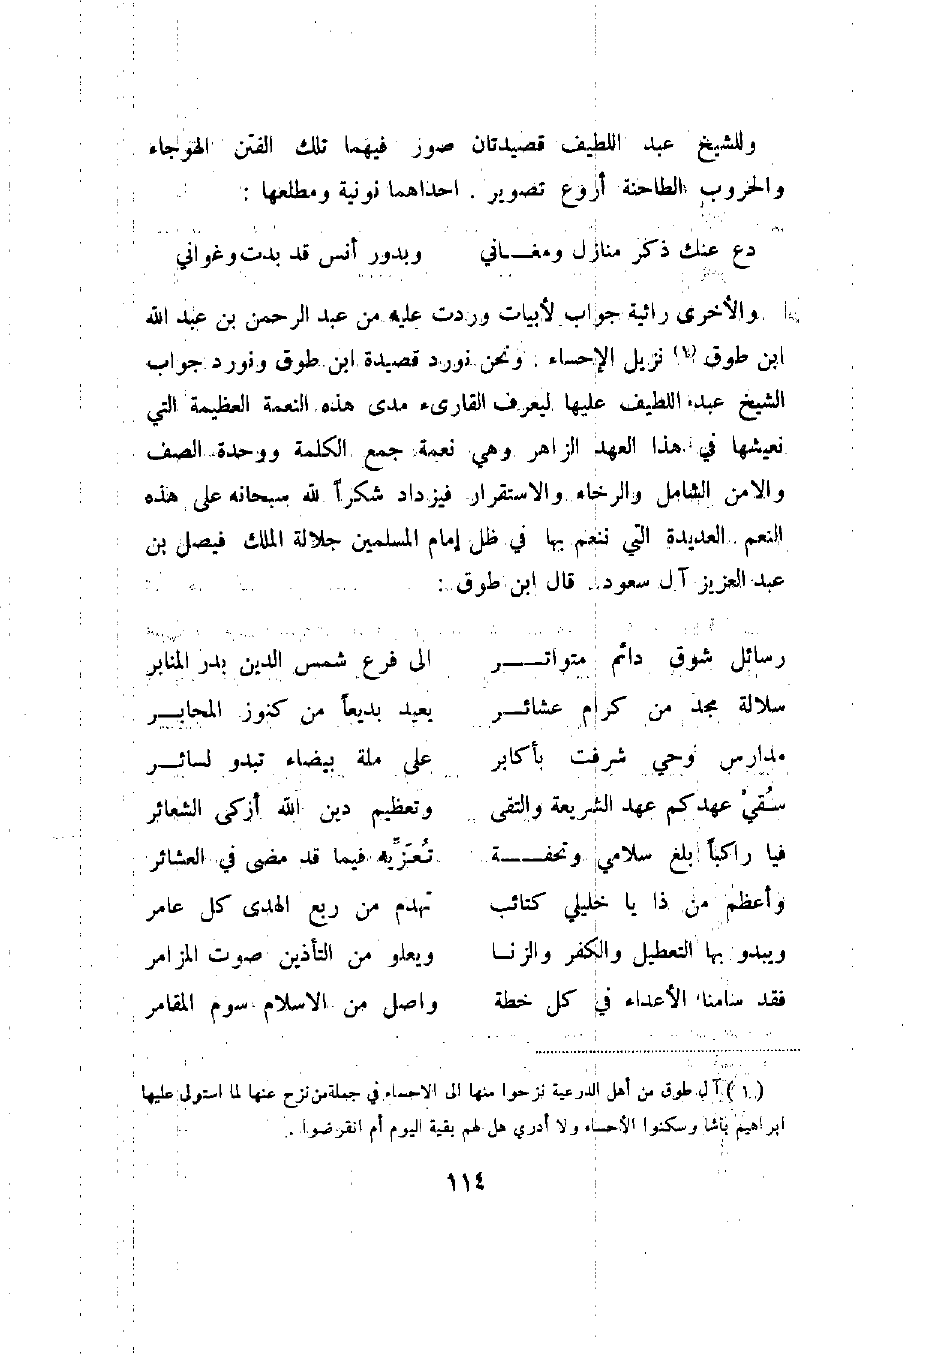 وللشيخ عبد اللطيف قصيدتان صور فيهما تلك الفتن الهوجاء
والحروب الطاحنة أروع تصوير . احداهما نونية ومطلعها :
دع عنك ذكر منازل ومغــاني وبدور أنس قد بدت وغواني
والأخرى رائية جواب لأبيات وردت عليه من عبد الرحمن بن عبد الله
ابن طوق (١) نزيل الإحساء . ونحن نورد قصيدة ابن طوق ونورد جواب
الشيخ عبد اللطيف عليها ليعرف القارىء مدى هذه النعمة العظيمة التي
نعيشها في هذا العهد الزاهر وهي نعمة جمع الكلمة ووحدة الصف
والامن الشامل والرخاء والاستقرار فيزداد شكراً لله سبحانه على هذه
النعم العديدة التي ننعم بها في ظل إمام المسلمين جلالة الملك فيصل بن
عبد العزيز آل سعود . قال ابن طوق :
رسائل شوق دائم متواتــر الى فرع شمس الدين بدر المنابر
سلالة مجد من كرام عشائــر يعيد بديعاً من كنوز المحابــر
مدارس وحي شرفت بأكابر على ملة بيضاء تبدو لسائــر
سُقيْ عهدكم عهد الشريعة والتقى وتعظيم دين الله أزكى الشعائر
فيا راكباً بلغ سلامي وتحفــة تُعزِّيه فيما قد مضى في العشائر
وأعظم من ذا يا خليلي كتائب تهدم من ربع الهدى كل عامر
ويبدو بها التعطيل والكفر والزنــا ويعلو من التأذين صوت المزامر
فقد سامنا الأعداء في كل خطة واصل من الاسلام سوم المقامر
(١) آل طوق من أهل الدرعية نزحوا منها الى الاحساء في جملة من نزح عنها لما استولى عليها
ابراهيم باشا وسكنوا الأحساء ولا أدري هل لهم بقية اليوم أم انقرضوا .
١١٤